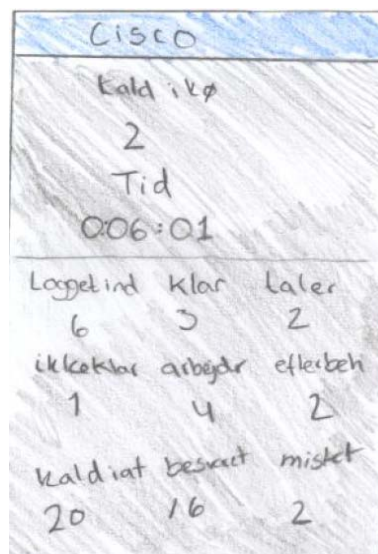 Cisco
Kald i kø
2
Tid
0:06:01
Logget ind klar taler
6 3 2
ikkeklar arbejdr efterbeh
1 4 2
Kald iat besvaret mistet
20 16 2